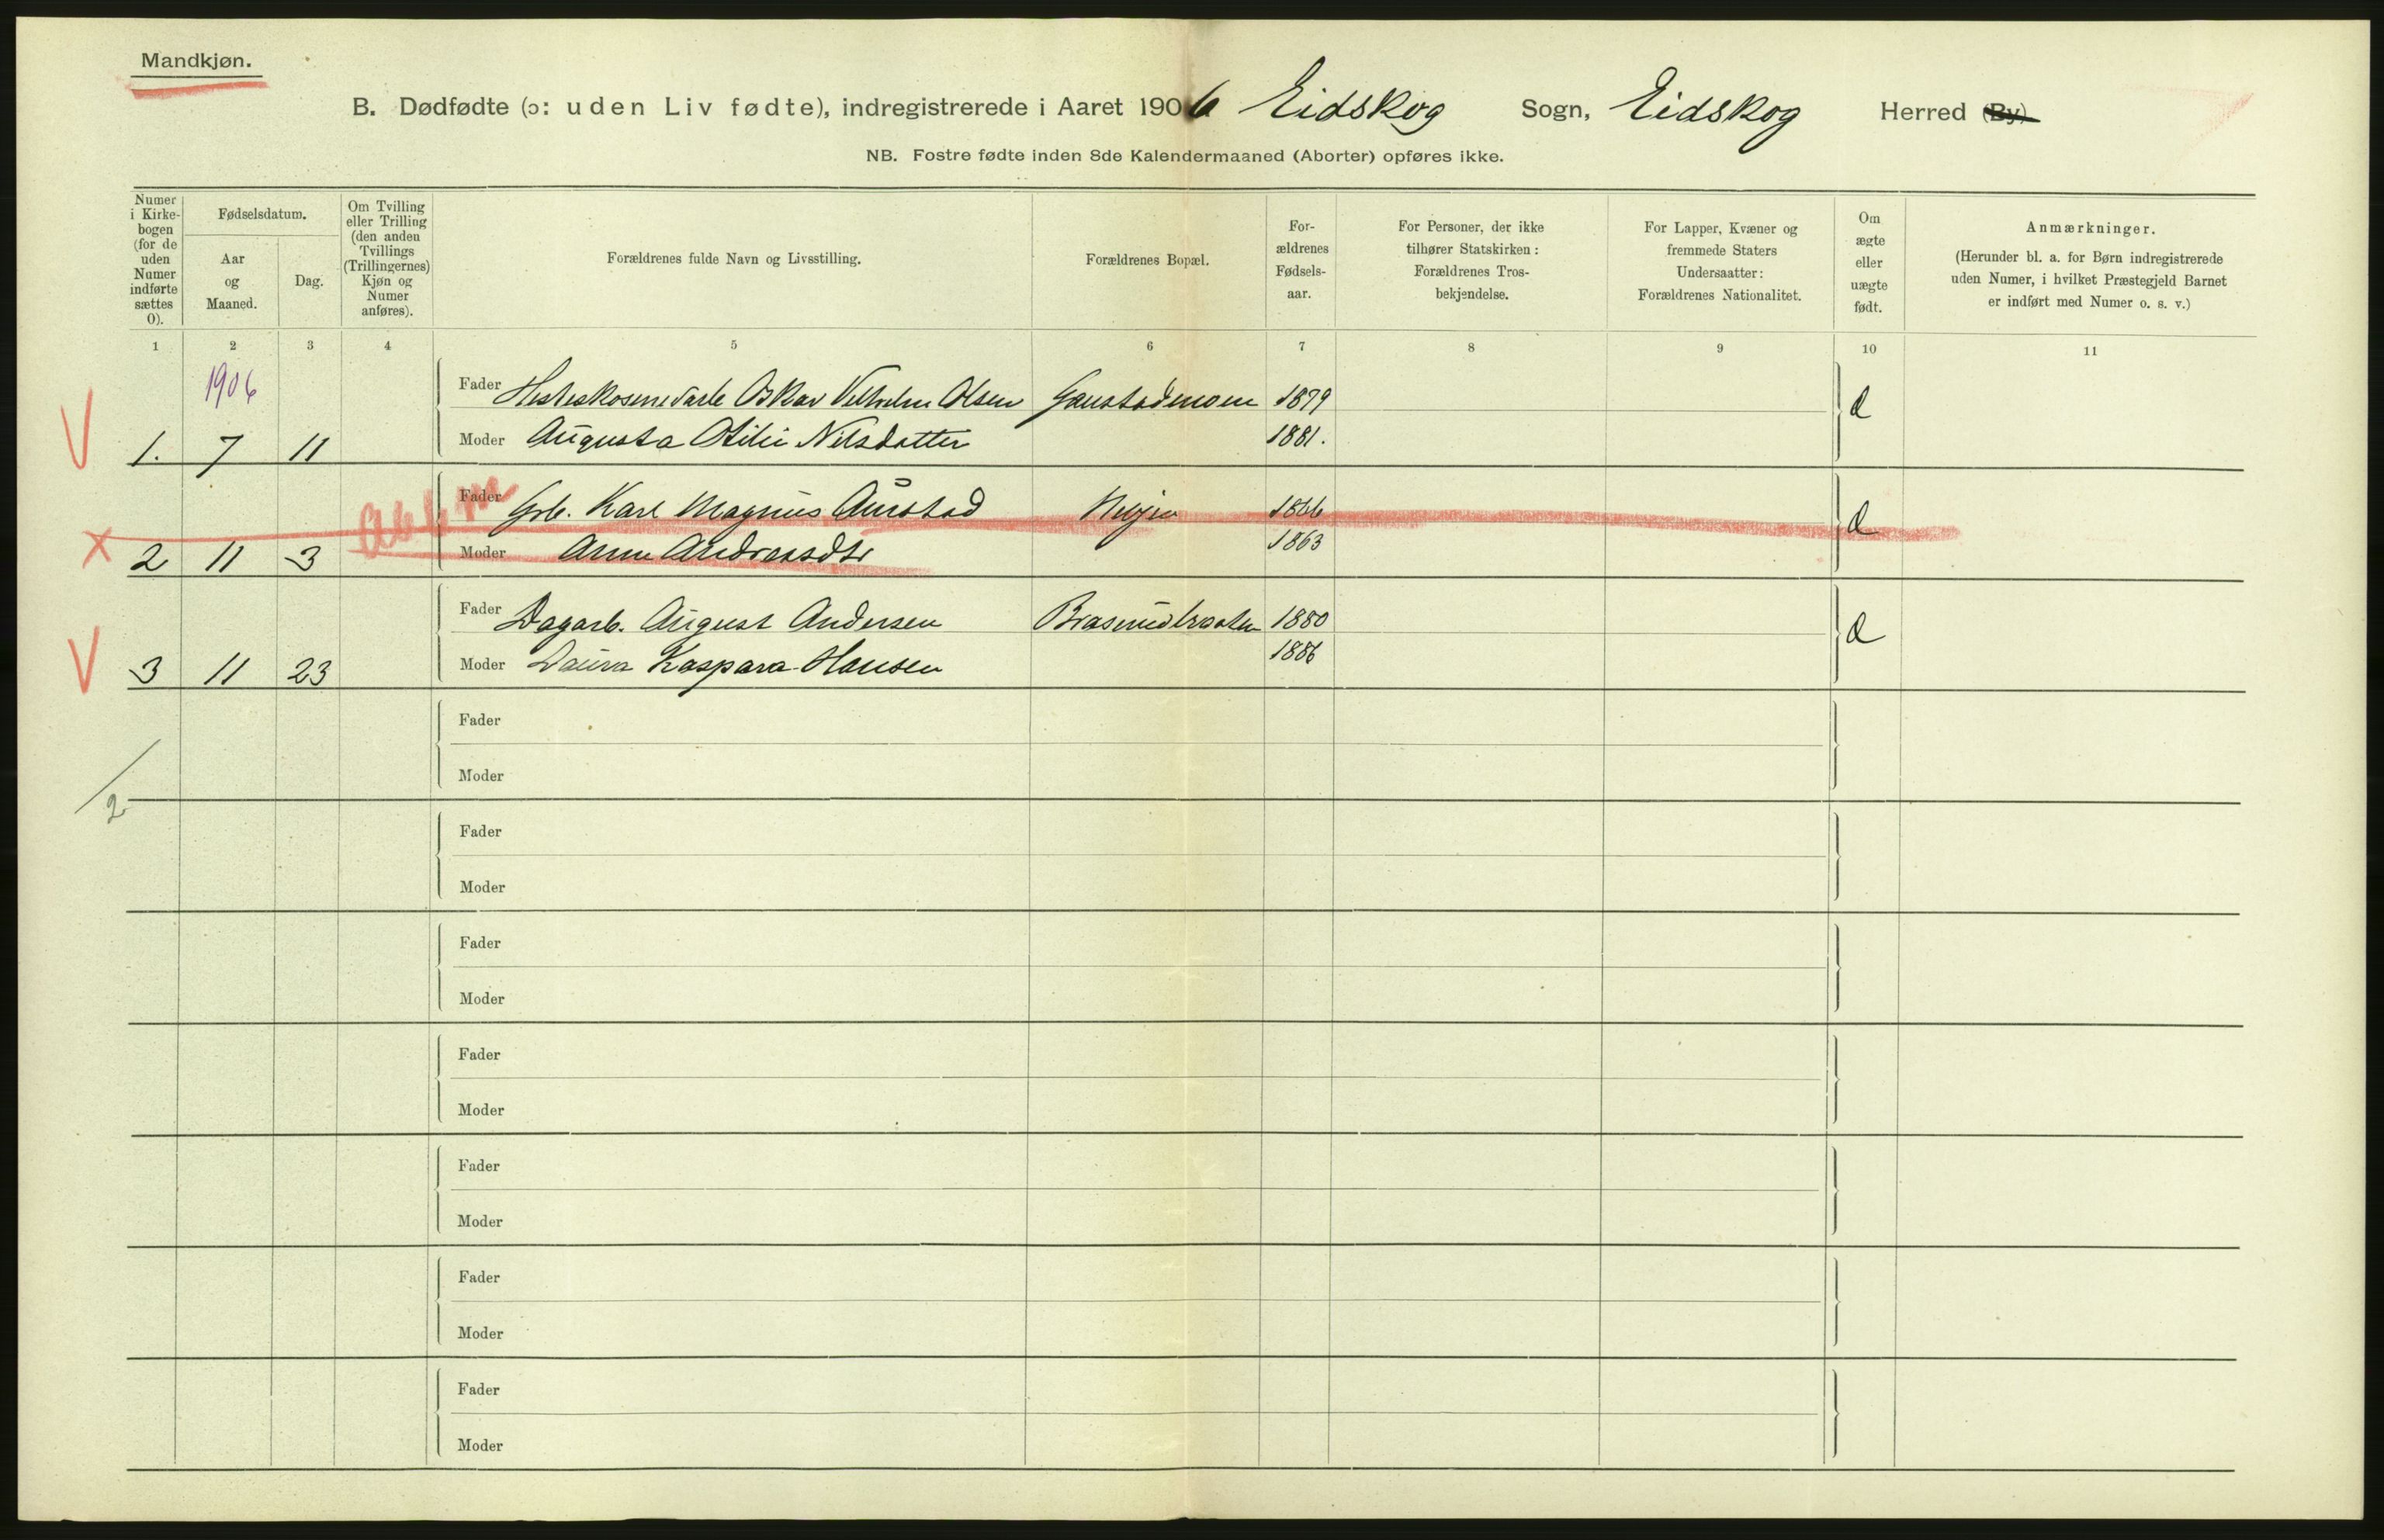 Mandkjøn.
B. Dødfødte (ɔ: uden Liv fødte), indregistrerede i Aaret 1906 Eidskog Sogn, Eidskog Herred (By)
NB. Fostre fødte inden 8de Kalendermaaned (Aborter) opføres ikke.
Numer i Kirke-bogen (for de uden Numer indførte sættes 0).
Fødselsdatum.
Aar og Maaned.
Dag.
Om Tvilling eller Trilling (den anden Tvillings (Trillingernes) Kjøn og Numer anføres).
Forældrenes fulde Navn og Livsstilling.
Forældrenes Bopæl.
For-ældrenes Fødsels-aar.
For Personer, der ikke tilhører Statskirken: Forældrenes Tros-bekjendelse.
For Lapper, Kvæner og fremmede Staters Undersaatter: Forældrenes Nationalitet.
Om ægte eller uægte født.
Anmærkninger.
(Herunder bl. a. for Børn indregistrerede uden Numer, i hvilket Præstegjeld Barnet er indført med Numer o. s. v.)
1 2 3 4 5 6 7 8 9 10 11
1906
V Fader Oskar Vilhelm Olsen 1879
1. 7 11 Moder Augusta Otilie Nilsdatter 1881.
Fader Grb. Karl Magnus Aurstad 1866
x 2 11 3 Moder Anne Andreasdtr 1863
Fader Dagarb. August Andersen 1880
V 3 11 23 Moder Laura Kaspara Hansen 1886
Fader
Moder
/2
Fader
Moder
Fader
Moder
Fader
Moder
Fader
Moder
Fader
Moder
Fader
Moder